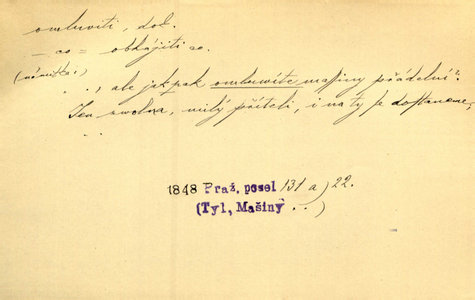 omluviti, dok.
— co = obhájiti co.
(námitka:)
..., ale jak pak omluvíte mašiny přádelní?
Jen zvolna, milý příteli, i na ty se dostaneme,
...
1848 Praž. posel 131 a) 22.
(Tyl, Mašiny ..)